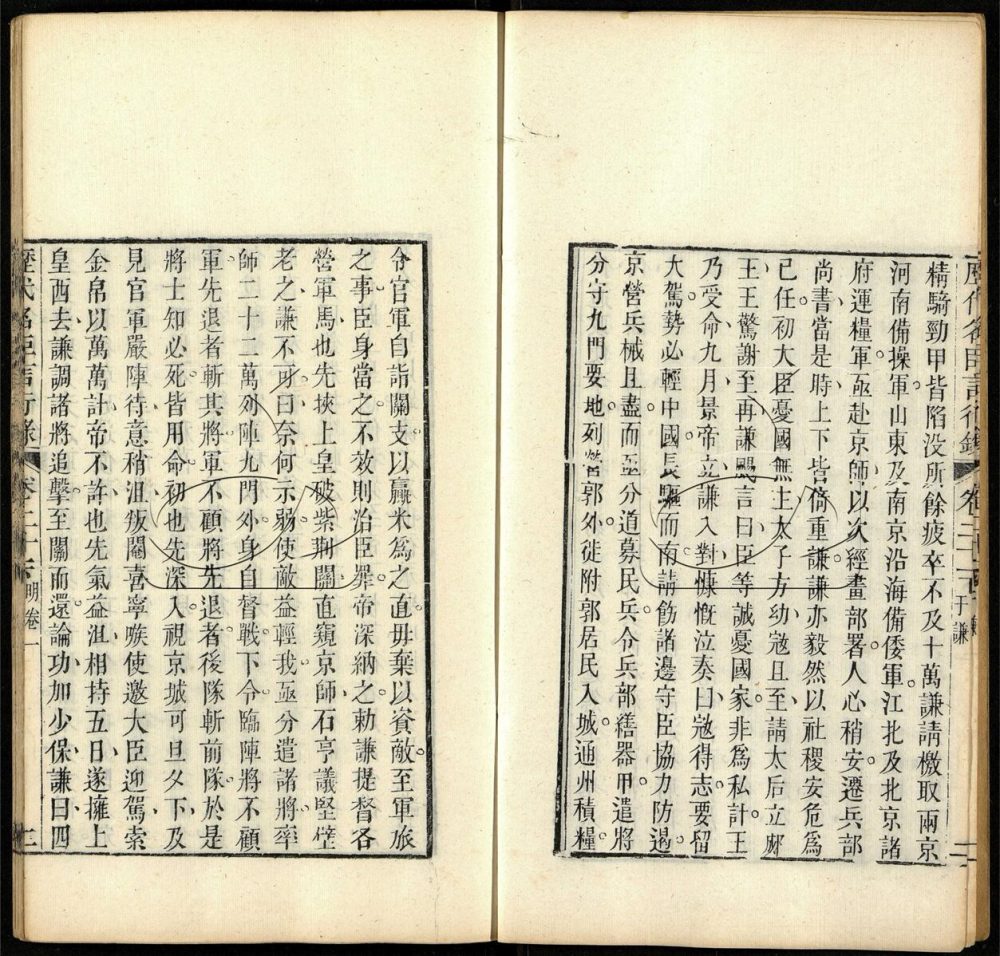 精騎勁甲皆陷没所餘疲卒不及十萬謙請檄取兩京
河南備操軍山東及南京沿海備倭軍江北及北京諸
府運糧軍亟赴京師以次經畫部署人心稍安遷兵部
尚書當是時上下皆倚重謙謙亦毅然以社稷安危爲
已任初大臣憂國無主太子方幼寇且至請太后立郕
王王驚謝至再謙颺言曰臣等誠憂國家非爲私計王
乃受命九月景帝立謙入對慷慨泣奏曰寇得志要留
大駕勢必輕中國長驅而南請飭諸邊守臣協力防遏
京營兵械且盡而亟分道募民兵令兵部繕器甲遣將
分守九門要地列營郭外徙附郭居民入城通州積糧
令官軍自詣關支以贏米爲之直毋棄以資敵至軍旅
之事臣身當之不效則治臣罪帝深納之勅謙提督各
營軍馬也先挾上皇破紫荆關直窺京師石亨議堅壁
老之謙不可曰奈何示弱使敵益輕我亟分遣諸將率
師二十二萬列陣九門外身自督戰下令臨陣將不顧
軍先退者斬其將軍不顧將先退者後隊斬前隊於是
將士知必死皆用命初也先深入視京城可旦夕下及
見官軍嚴陣待意稍沮叛閹喜寧嗾使邀大臣迎駕索
金帛以萬萬計帝不許也先氣益沮相持五日遂擁上
皇西去謙調諸將追擊至關而還論功加少保謙曰四
歷代名臣言行錄 卷二十 明卷一 三